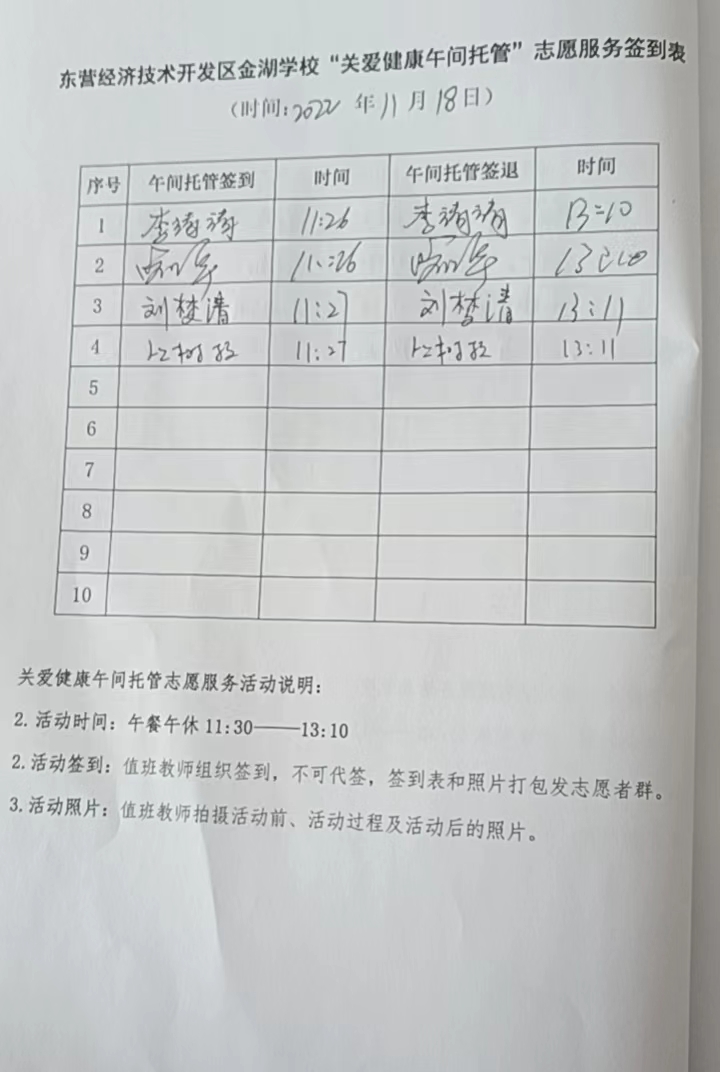 东营经济技术开发区金湖学校“关爱健康午间托管”志愿服务签到表
（时间:2022 年 11 月 18 日）
序号 午间托管签到 时间 午间托管签退 时间
1 李 11:26 李 13:10
2 11:26 13:10
3 刘梦清 11:27 刘梦清 13:11
4 11:27 13:11
5
6
7
8
9
10
关爱健康午间托管志愿服务活动说明：
2.活动时间：午餐午休 11:30——13:10
2.活动签到：值班教师组织签到，不可代签，签到表和照片打包发志愿者群。
3.活动照片：值班教师拍摄活动前、活动过程及活动后的照片。